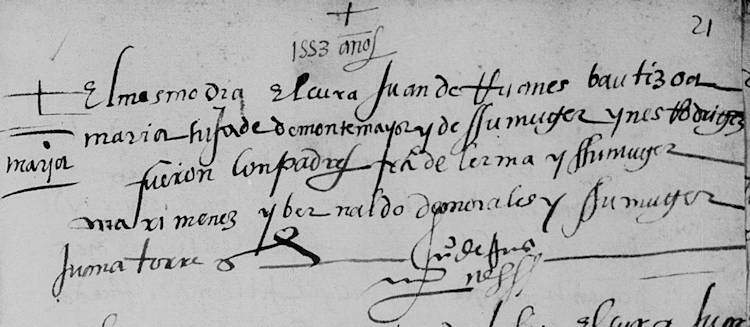 21
1553 años
El mesmo dia el cura Juan de funes bautizo a
maria hija de de montemayor y de su muger ynes Rodrigez
maria
fueron conpadres de lerma y su muger
mari menez y bernaldo de morales y su muger
Juana torre
Juº de fu
nes
el cura Juan